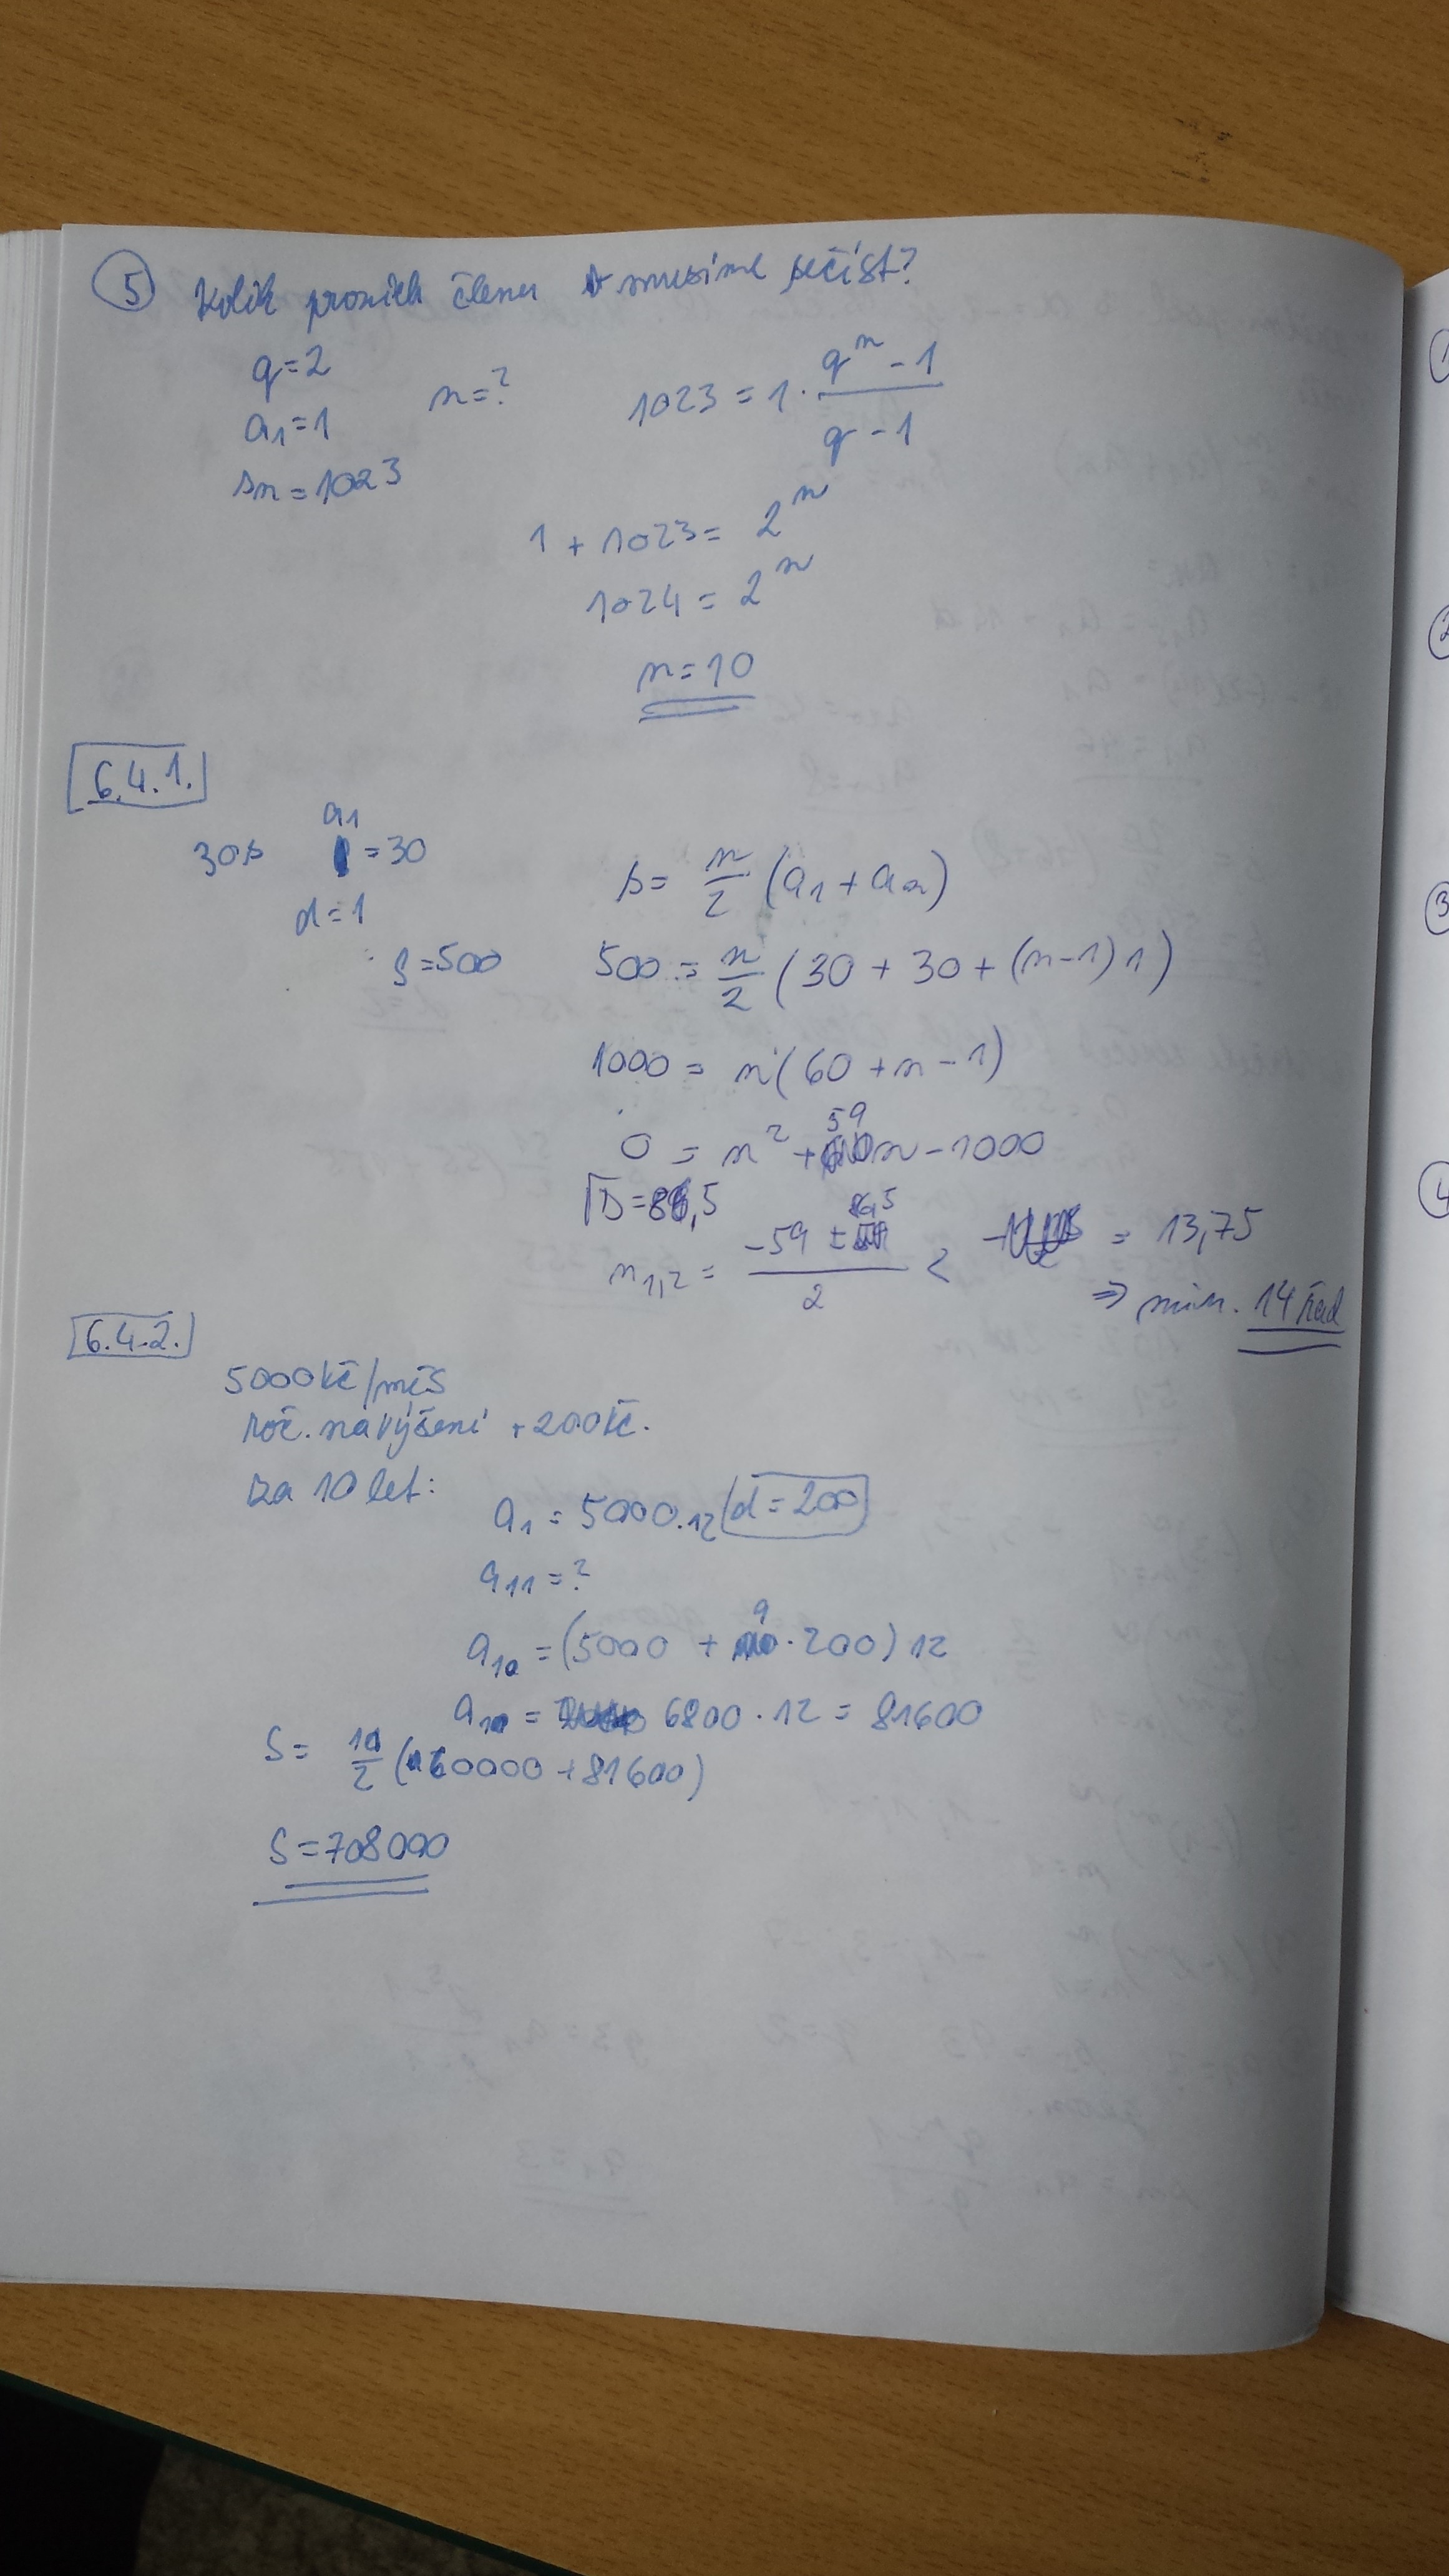 5 Kolik prvních členů musíme sečíst?
q=2
a₁=1
sn=1023
n=?
1023 = 1 · (qⁿ - 1)/(q - 1)
1 + 1023 = 2ⁿ
1024 = 2ⁿ
n=10
6.4.1.
30s a₁ = 30
d=1
S=500
s = n/2 (a₁ + aₙ)
500 = n/2 (30 + 30 + (n-1)1)
1000 = n(60 + n - 1)
0 = n² + 59n - 1000
√D = 86,5
n₁,₂ = (-59 ± 86,5)/2 < = 13,75
⇒ min. 14 řad
6.4.2.
5000kč/měs
roč. navýšení + 200kč.
za 10 let:
a₁ = 5000.12 d = 200
a₁₁ = ?
a₁₀ = (5000 + 9·200) 12
a₁₀ = 6800 · 12 = 81600
S = 10/2 (60000 + 81600)
S = 708000